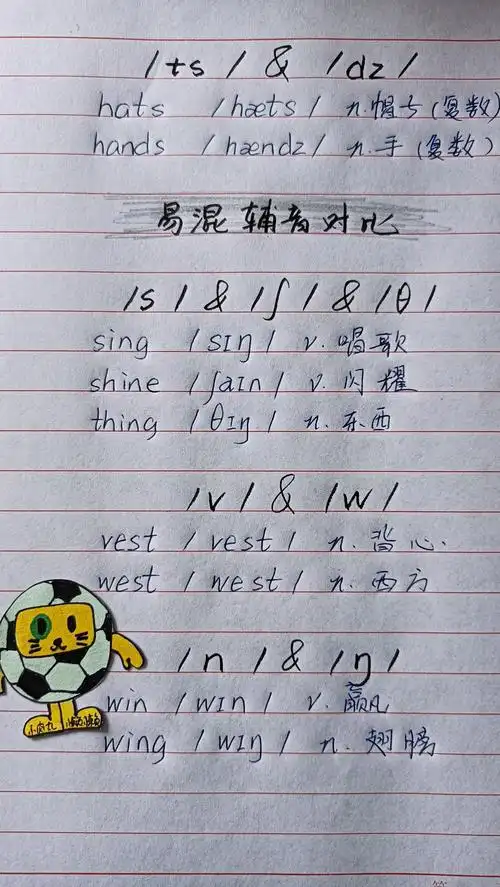 /ts/ & /dz/
hats /hæts/ n.帽子(复数)
hands /hændz/ n.手(复数)
易混辅音对比
/s/ & /ʃ/ & /θ/
sing /sɪŋ/ v.唱歌
shine /ʃaɪn/ v.闪耀
thing /θɪŋ/ n.东西
/v/ & /w/
vest /vest/ n.背心
west /west/ n.西方
/n/ & /ŋ/
win /wɪn/ v.赢
wing /wɪŋ/ n.翅膀